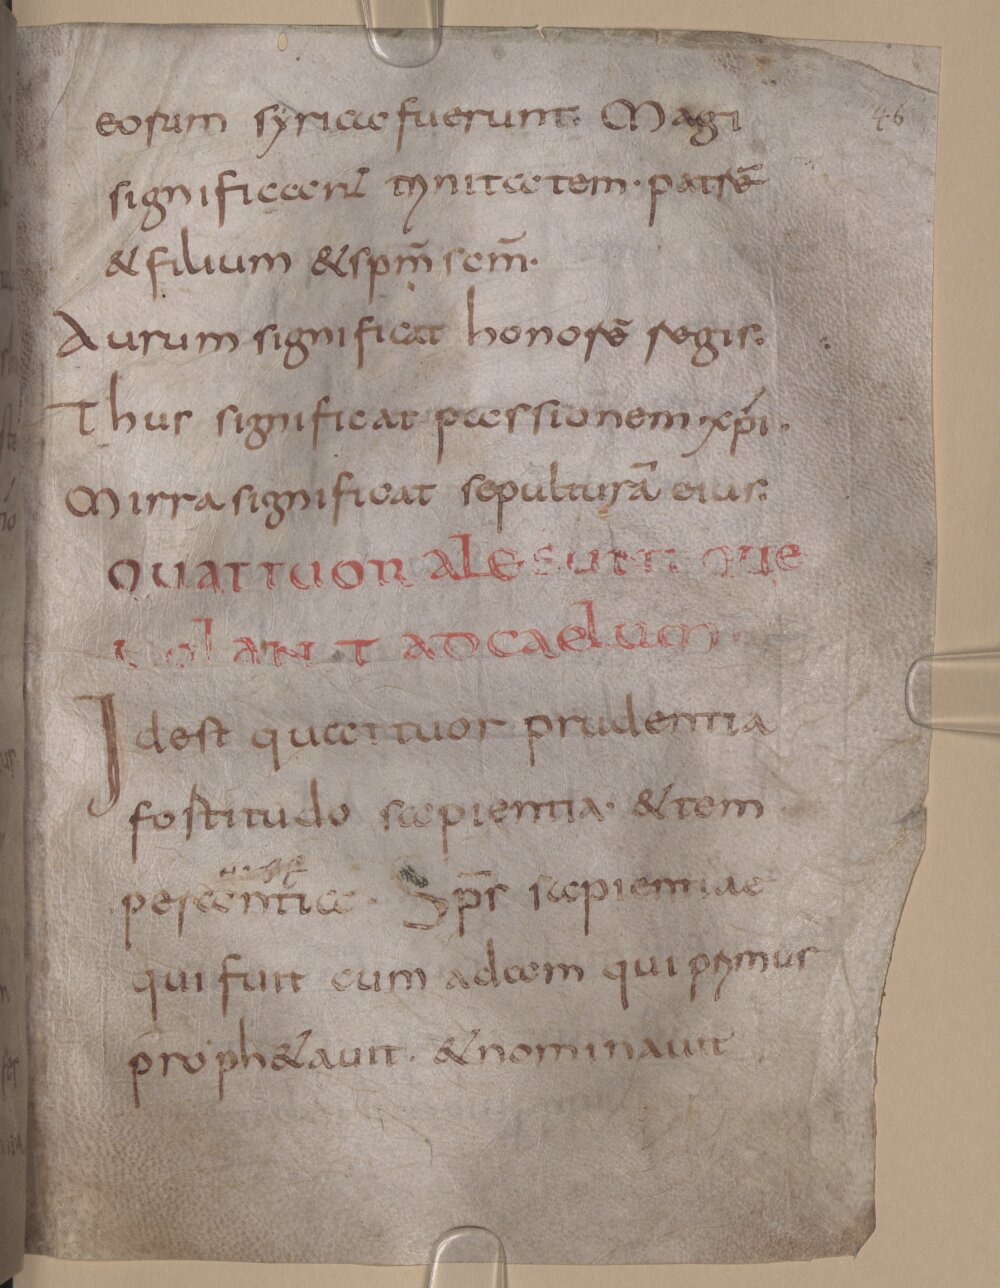 46
eorum syriace fuerunt. Magi
significant trinitatem. patrē
& filium & spm̄ scm̄.
Aurum significat honorē regis.
Thus significat passionem xp̄i.
Mirra significat sepulturā eius.
QUATTUOR ALE SUNT QUE
VOLANT AD CAELUM.
Id est quattuor prudentia
fortitudo sapientia. & tem
perantia. Sp̄s sapientiae
qui fuit cum adam qui primus
proph&auit. & nominauit